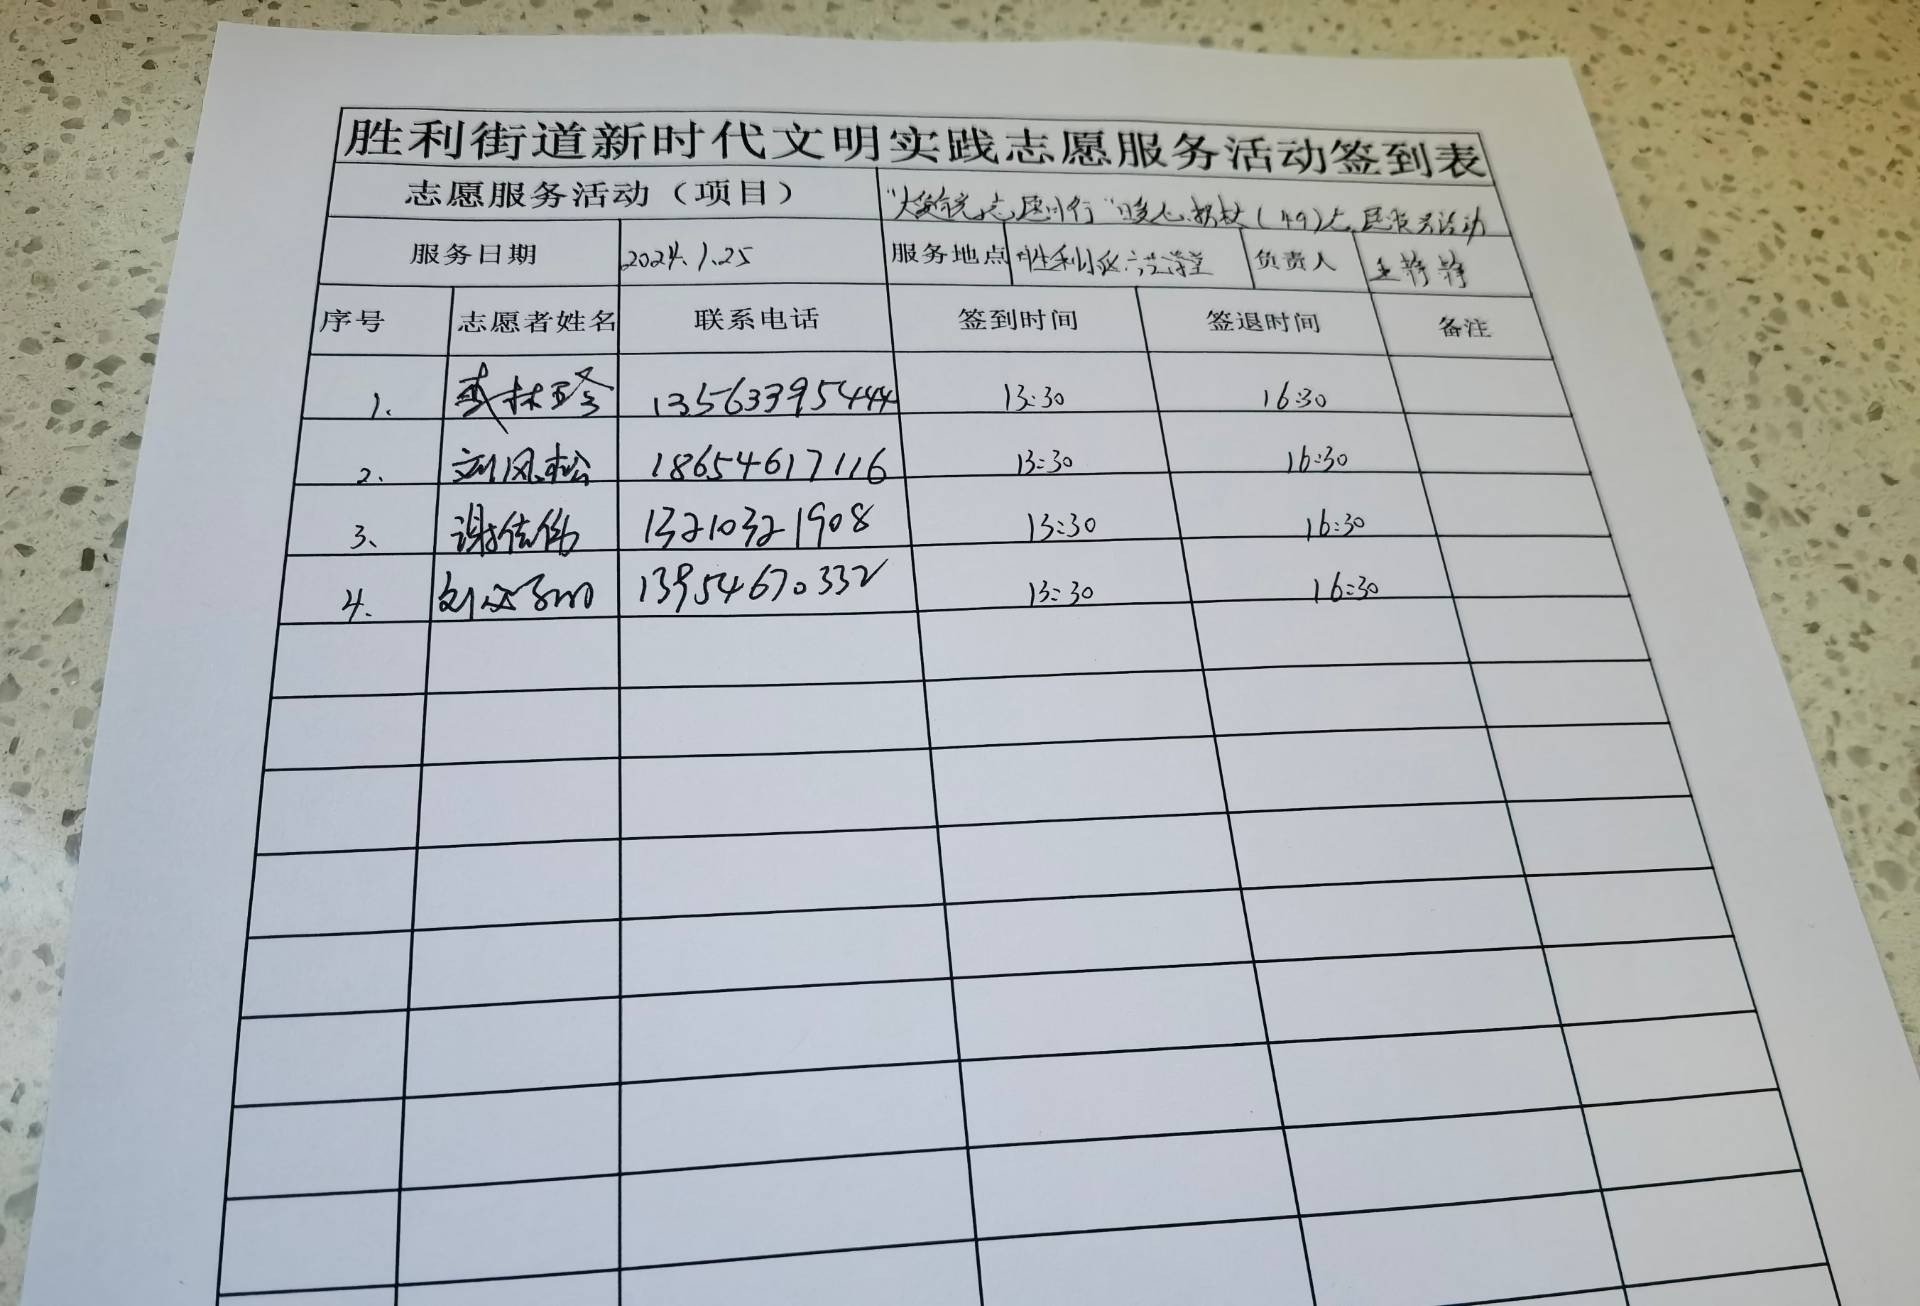 胜利街道新时代文明实践志愿服务活动签到表
志愿服务活动（项目）
服务日期 2024.1.25 服务地点 胜利社区 负责人 王静静
序号 志愿者姓名 联系电话 签到时间 签退时间 备注
1. 13563395444 13:30 16:30
2. 刘风松 18654617116 13:30 16:30
3、 谢佳伟 13210321908 13:30 16:30
4. 13954670332 13:30 16:30